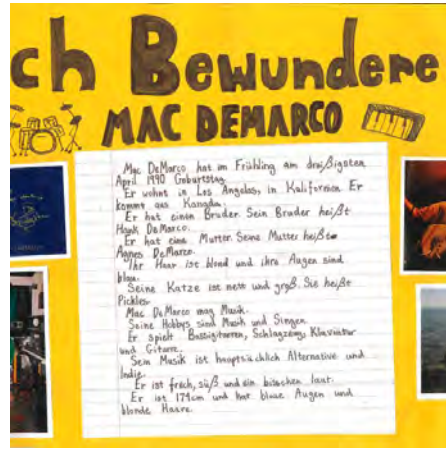 ch Bewundere
MAC DEMARCO
Mac DeMarco hat im Frühling am dreißigsten
April 1990 Geburtstag.
Er wohnt in Los Angelas, in Kalifornien. Er
kommt aus Kanada.
Er hat einen Bruder. Sein Bruder heißt
Hank DeMarco.
Er hat eine Mutter. Seine Mutter heißt
Agnes DeMarco.
Ihr Haar ist blond und ihre Augen sind
blau.
Seine Katze ist nett und groß. Sie heißt
Pickles.
Mac DeMarco mag Musik.
Seine Hobbys sind Musik und Singen.
Er spielt Bassgitarren, Schlagzeug, Klaviatur
und Gitarre.
Sein Musik ist hauptsächlich Alternative und
Indie.
Er ist frech, süß und ein bisschen laut.
Er ist 174cm und hat blaue Augen und
blonde Haare.